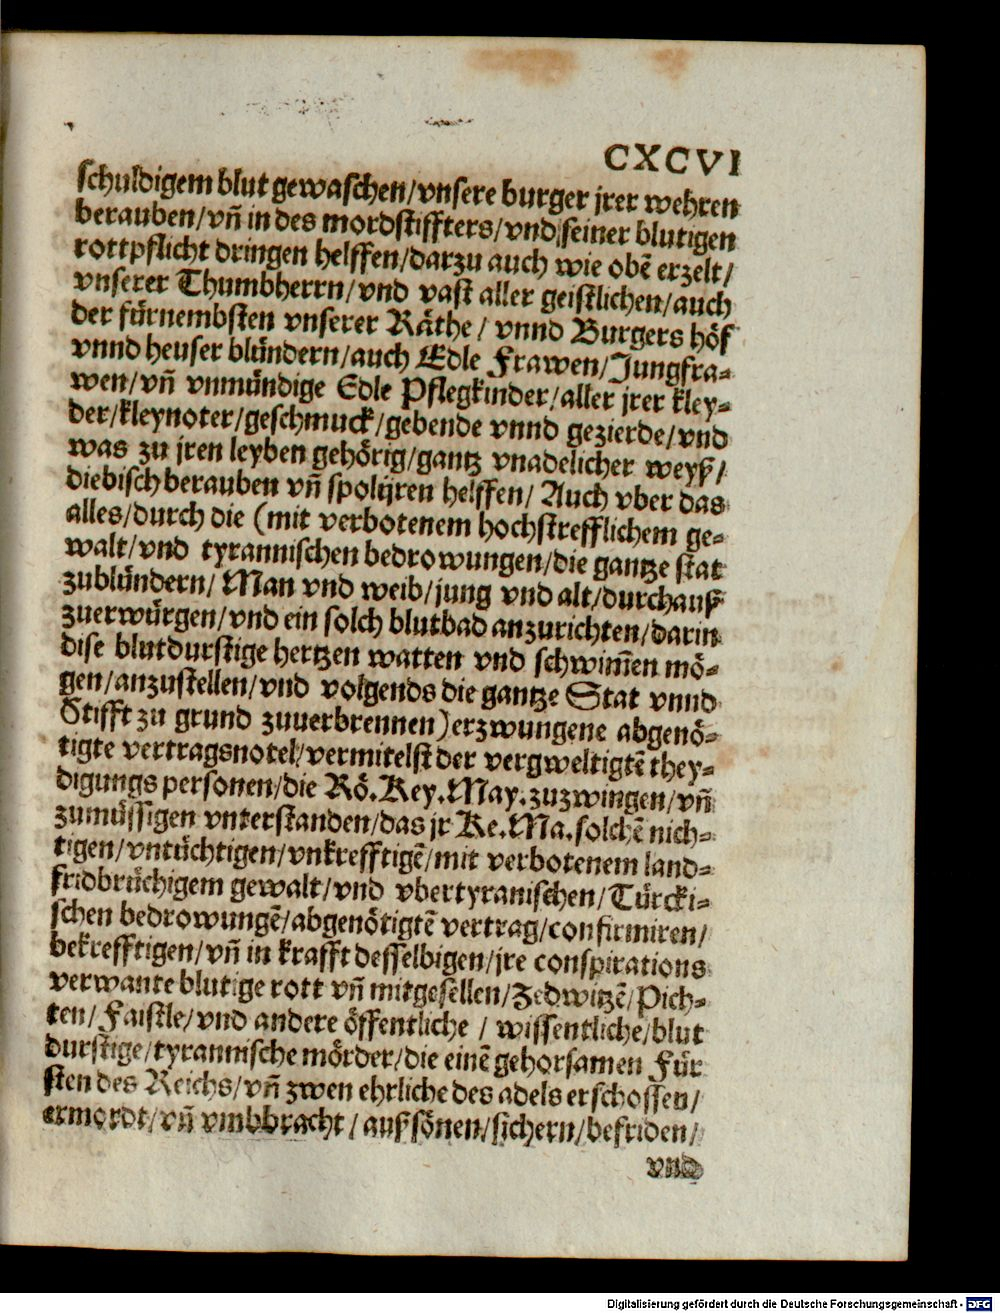 CXCVI
schuldigem blut gewaschen/vnsere burger jrer wehren
berauben/vñ in des mordstiffters/vnd seiner blutigen
rottpflicht dringen helffen/darzu auch wie obē erzelt/
vnserer Thumbherrn/vnd vast aller geistlichen/auch
der fürnembsten vnserer Räthe/ vnnd Burgers höf
vnnd heuser blündern/auch Edle Frawen/Jungfra-
wen/vñ vnmündige Edle Pflegkinder/aller jrer kley-
der/kleynoter/geschmuck/gebende vnnd gezierde/vnd
was zu jren leyben gehörig/gantz vnadelicher weyß/
diebisch berauben vñ spolijren helffen/ Auch vber das
alles/durch die (mit verbotenem hochstrefflichem ge-
walt/vnd tyrannischen bedrowungen/die gantze stat
zublündern/ Man vnd weib/jung vnd alt/durchauß
zuerwürgen/vnd ein solch blutbad anzurichten/darin
dise blutdurstige hertzen watten vnd schwim̄en mö-
gen/anzustellen/vnd volgends die gantze Stat vnnd
Stifft zu grund zuuerbrennen) erzwungene abgenö-
tigte vertragsnotel/vermitelst der vergweltigtē they-
digungs personen/die Rö. Key. May. zuzwingen/vñ
zumüssigen vnterstanden/das jr Ke. Ma. solchē nich-
tigen/vntüchtigen/vnkrefftigē/mit verbotenem land-
fridbrüchigem gewalt/vnd vbertyranischen/Türcki-
schen bedrowungē/abgenötigtē vertrag/confirmiren/
bekrefftigen/vñ in krafft desselbigen/jre conspirations
verwante blutige rott vñ mitgesellen/Zedwitzē/Pich-
ten/Faistle/vnd andere öffentliche / wissentliche/blut
durstige/tyrannische mörder/die einē gehorsamen Für
sten des Reichs/vñ zwen ehrliche des adels erschossen/
ermordt/vñ vmbbracht/außsönen/sichern/befriden/
vnd
Digitalisierung gefördert durch die Deutsche Forschungsgemeinschaft - DFG